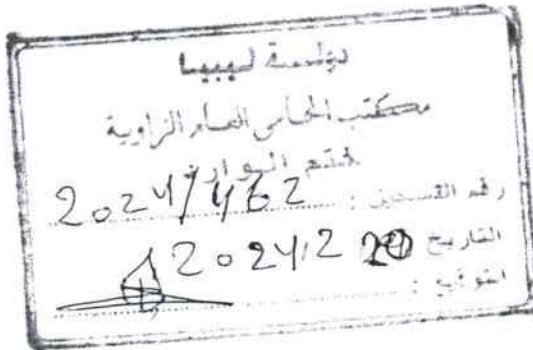 دولة ليبيا
مكتب المحامي العام الزاوية
ختم الوارد
رقم التسجيل : 2024/462
التاريخ 2024.2
التوقيع :